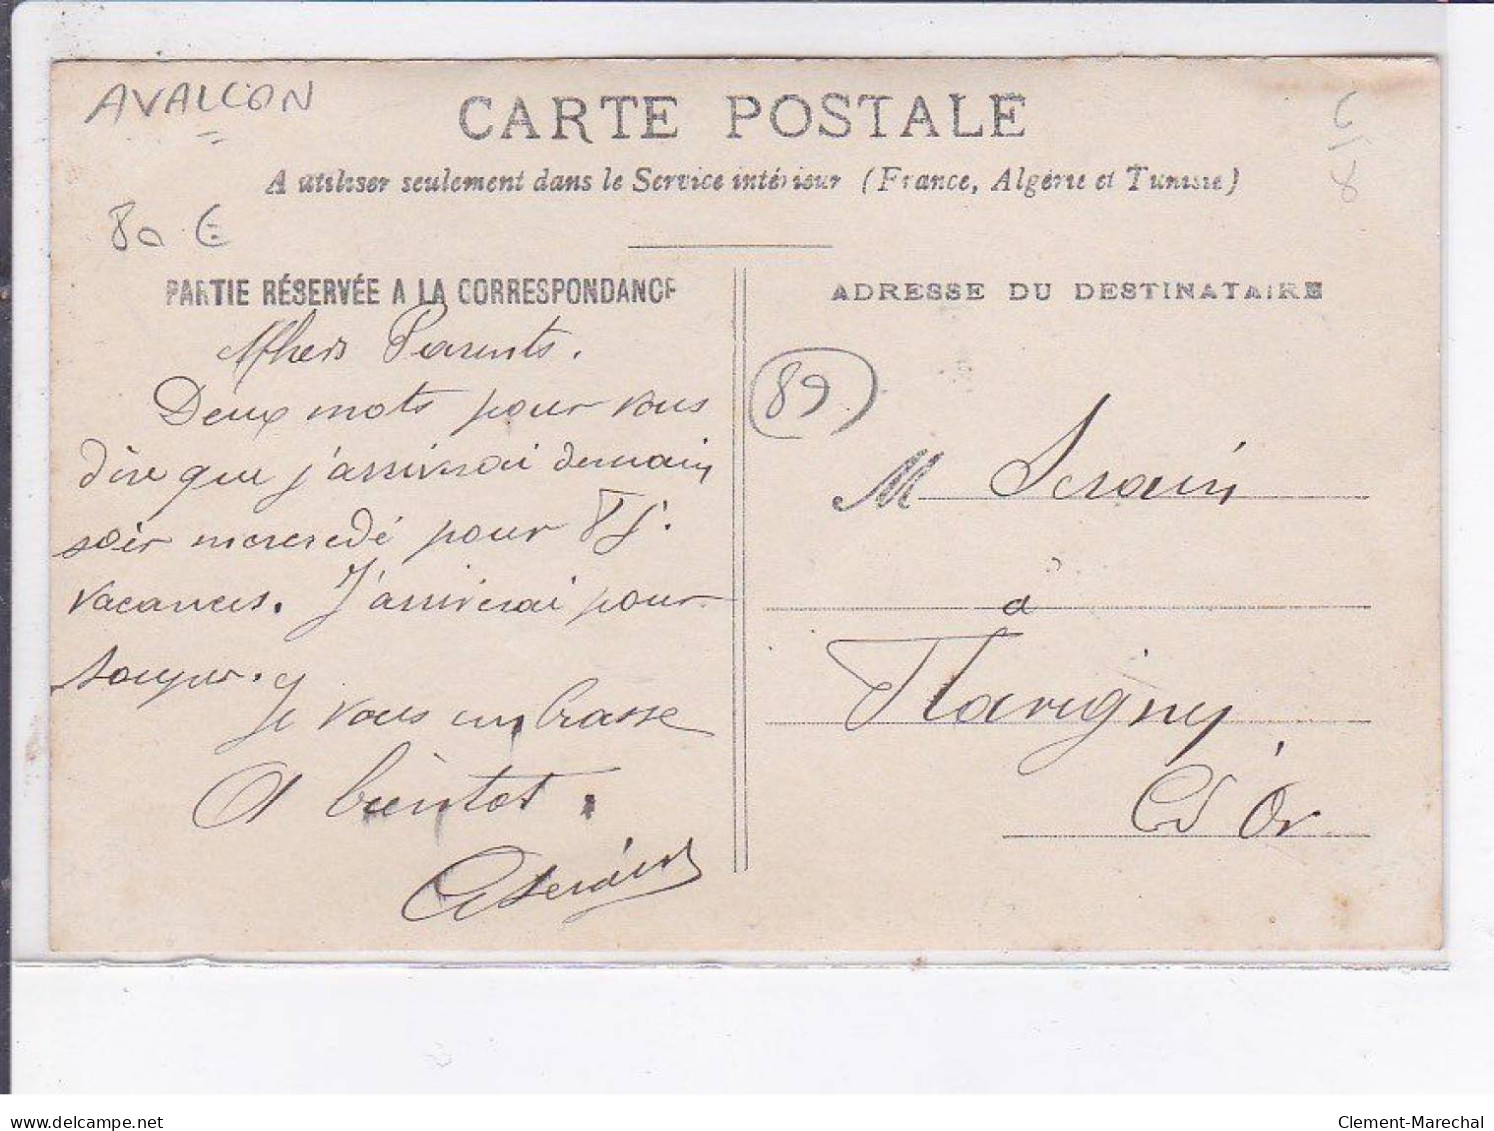 AVALLON
CARTE POSTALE
A utiliser seulement dans le Service intérieur (France, Algérie et Tunisie)
80 €
PARTIE RÉSERVÉE A LA CORRESPONDANCE
ADRESSE DU DESTINATAIRE
Chers Parents.
Deux mots pour vous
dire que j'arriverai demain
soir mercredi pour
vacances. J'arriverai pour
souper.
Je vous embrasse
A bientôt.
89
M Serain
à
Flavigny
C d'Or
delcampe.net
Clement-Marechal